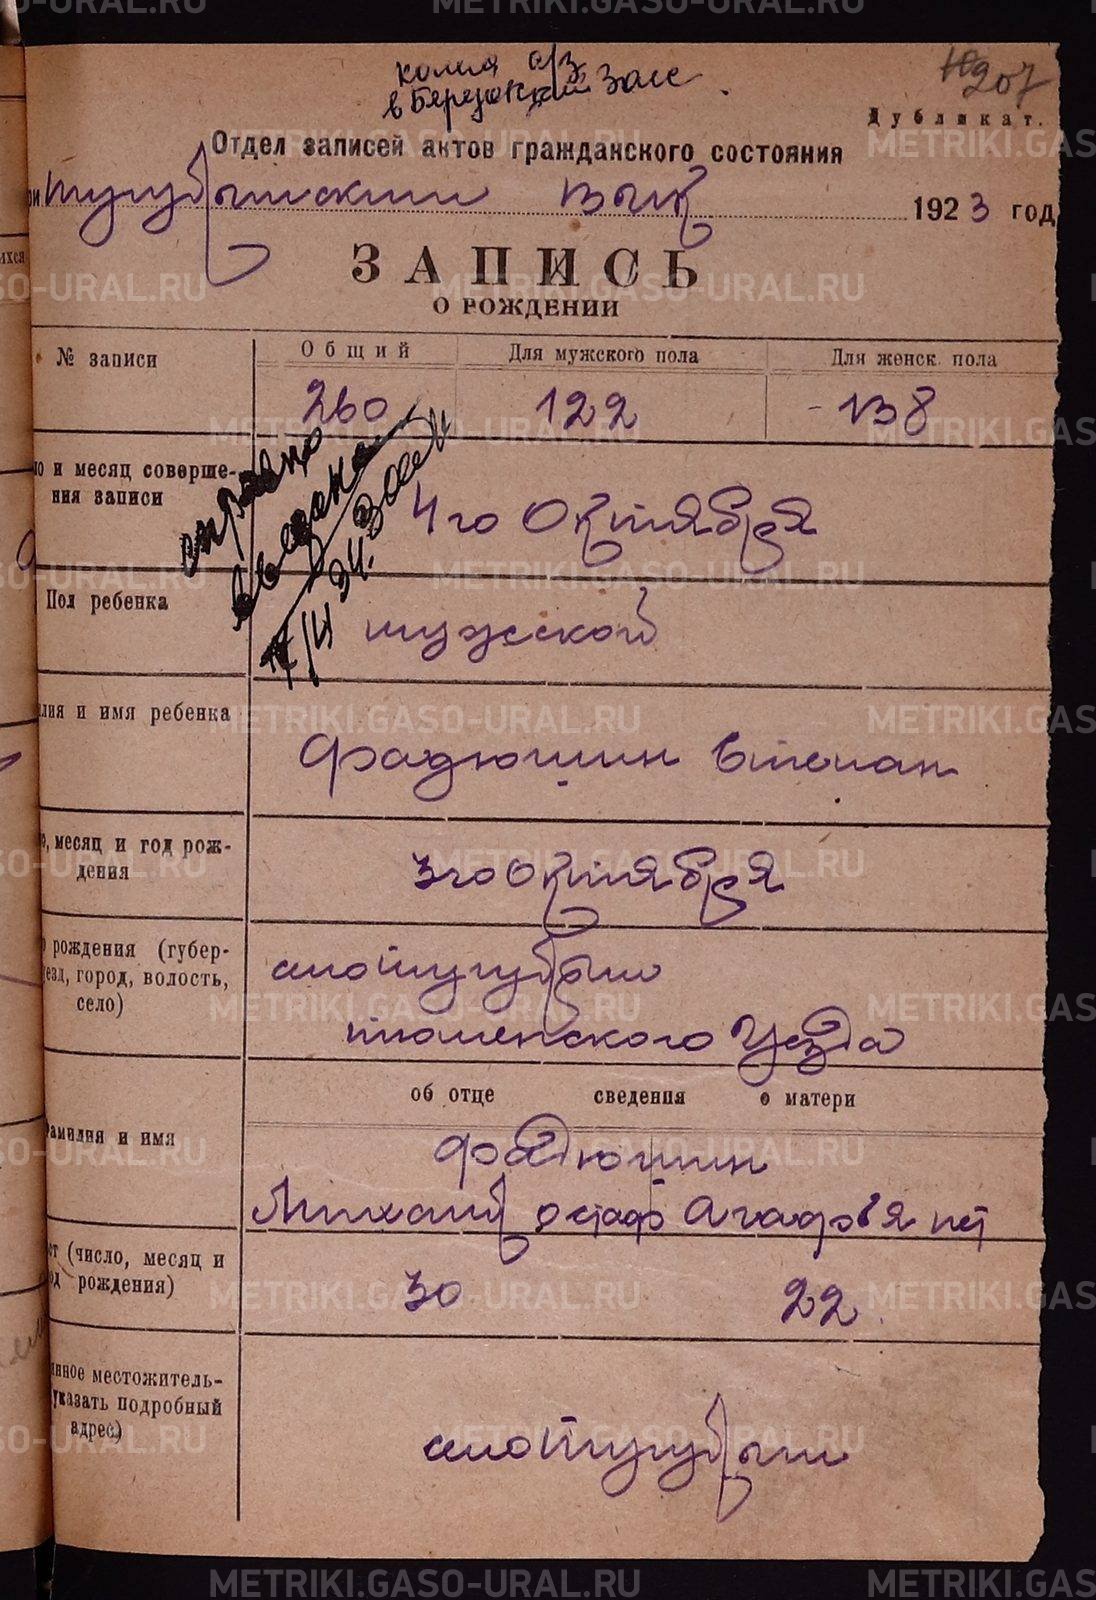 копия
в Березовский Загс
207
Дубликат.
Отдел записей актов гражданского состояния
Тугулымский вик 1923 год
ЗАПИСЬ
О РОЖДЕНИИ
№ записи
Общий
Для мужского пола
Для женск. пола
260
122
138
о и месяц соверше-
ния записи
4го Октября
Пол ребенка
мужской
лия и имя ребенка
Фадюшин Степан
, месяц и год рож-
дения
3го Октября
рождения (губер-
езд, город, волость,
село)
село Тугулым
тюменского Уезда
об отце сведения о матери
амилия и имя
Фадюшин
Михаил Агафья
ст (число, месяц и
од рождения)
30
22
янное местожитель-
указать подробный
адрес)
село Тугулым
METRIKI.GASO-URAL.RU